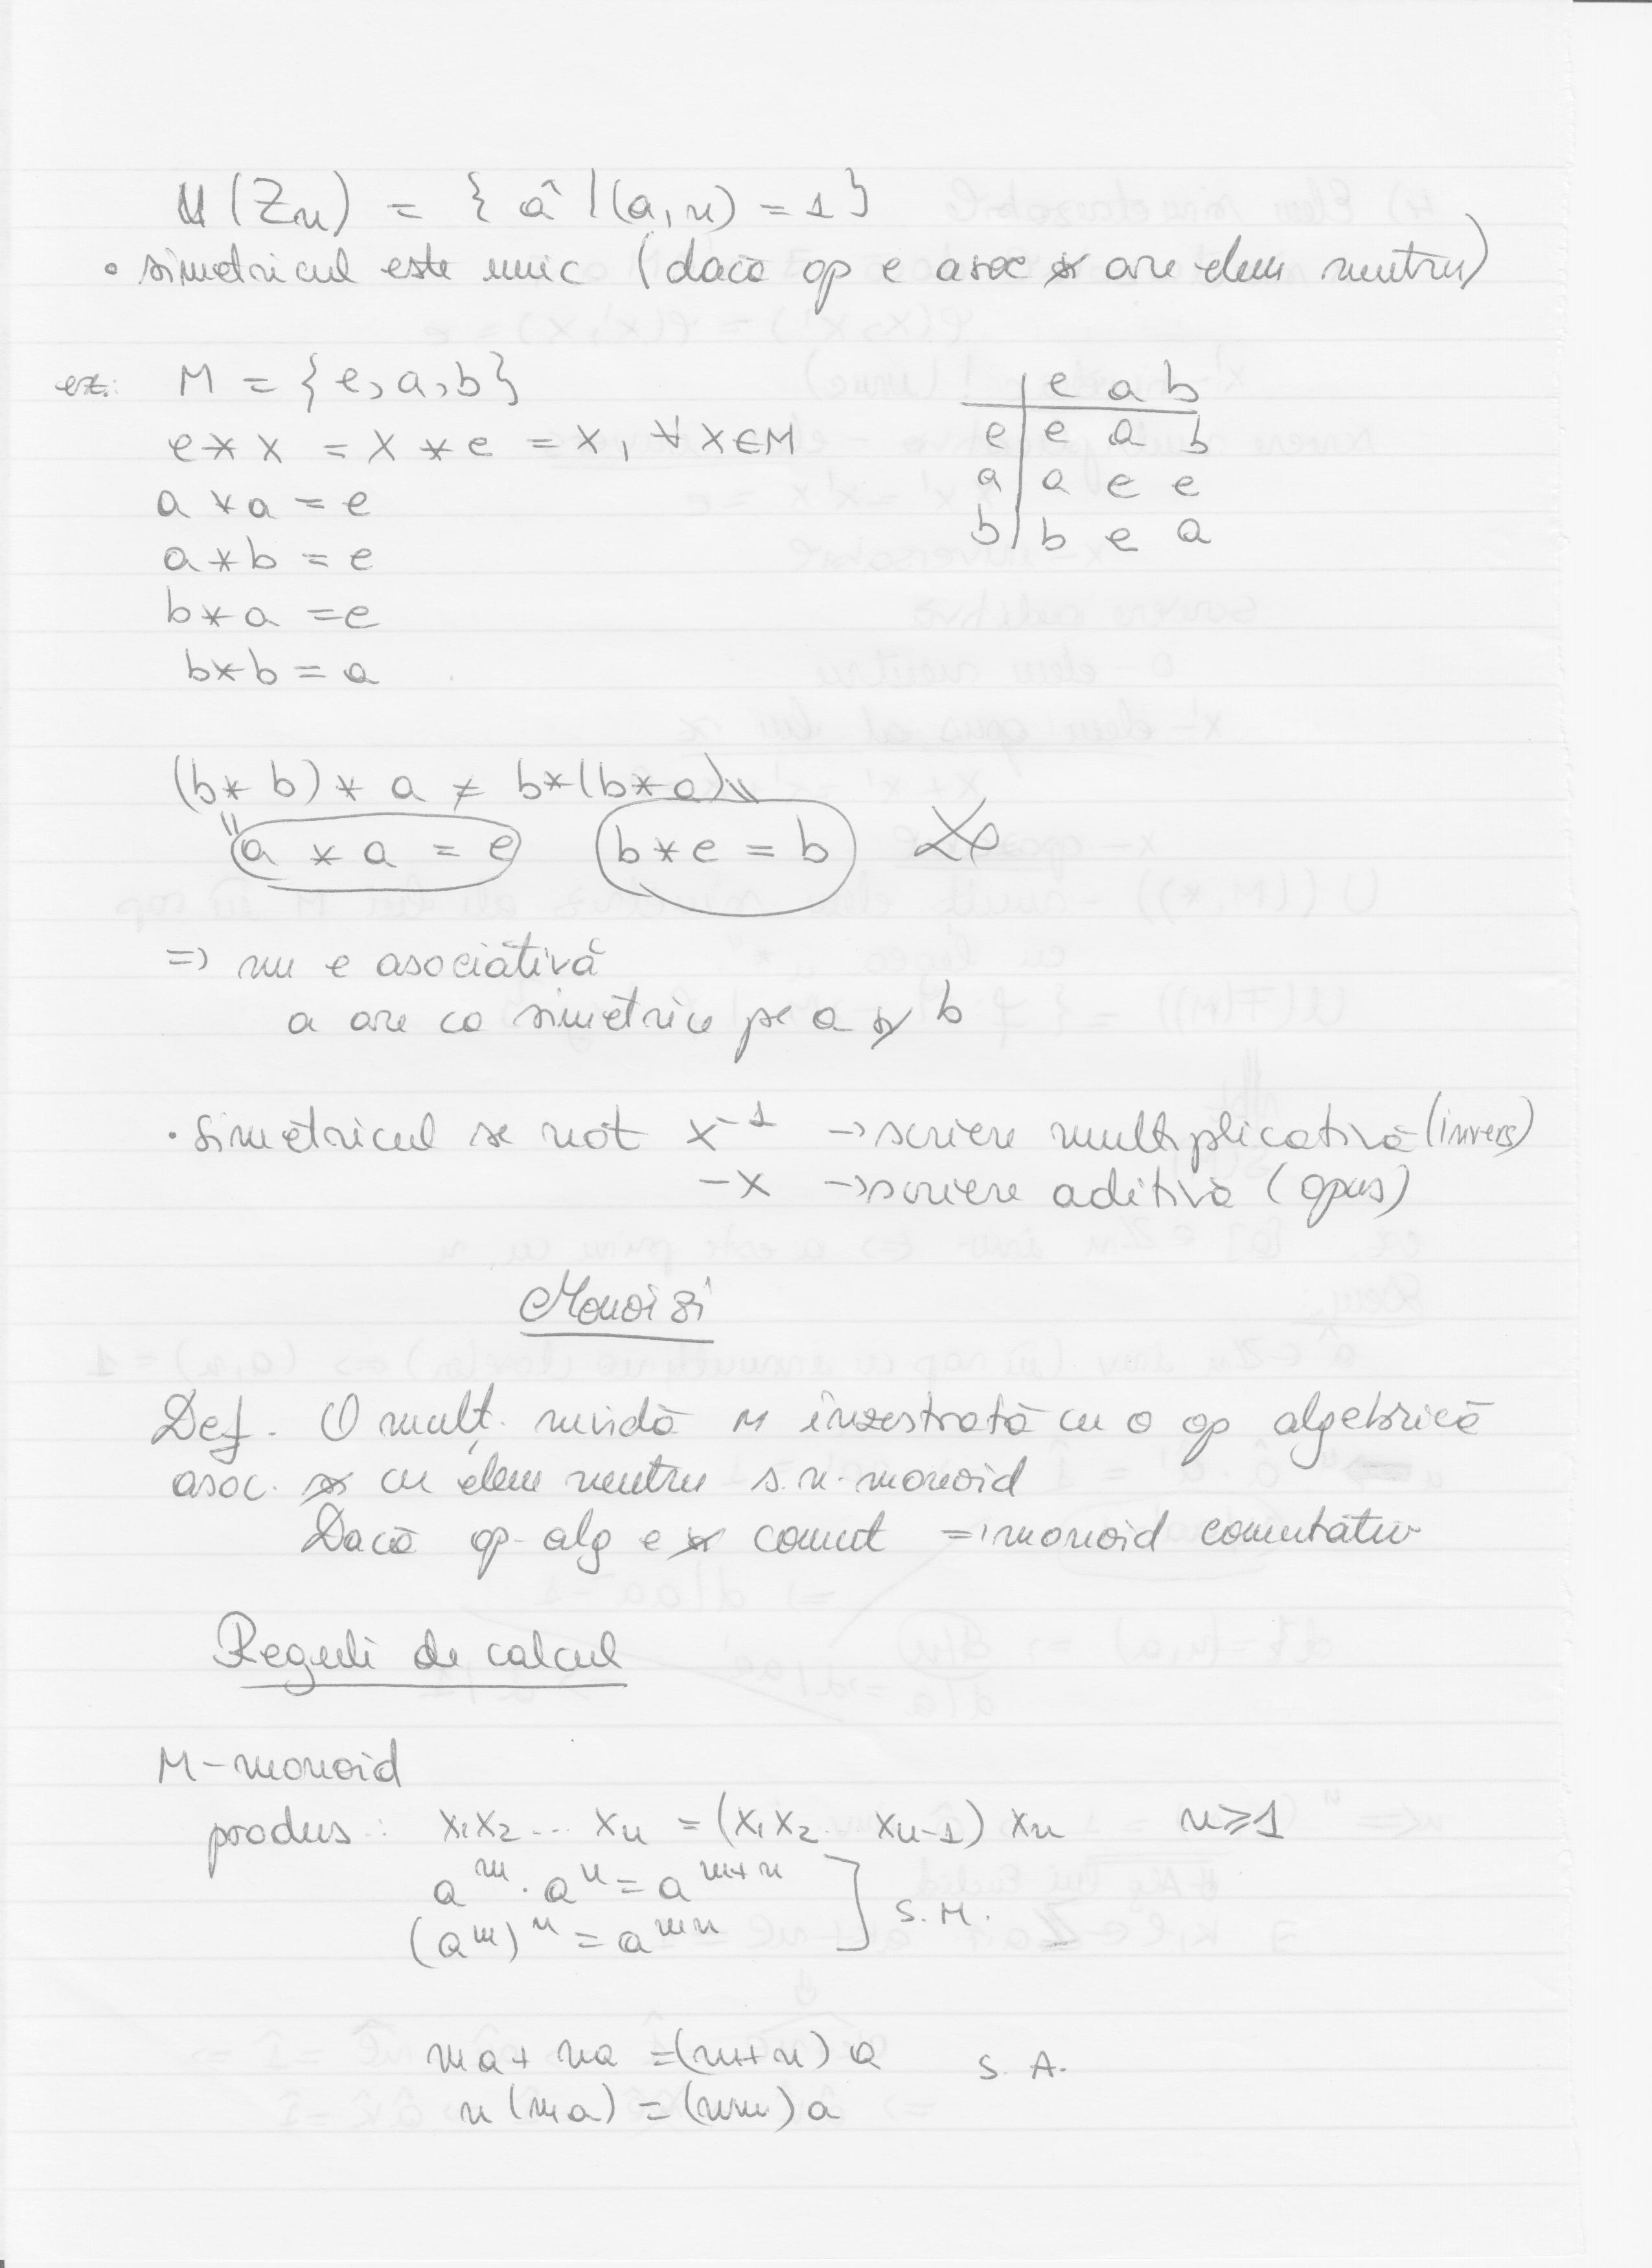 U(Zn) = { â | (a,n) = 1 }
• simetricul este unic (dacă op e asoc și are elem neutru)
ex: M = {e, a, b}
e * x = x * e = x, ∀ x∈M
a * a = e
a * b = e
b * a = e
b * b = a
| e a b
e | e a b
a | a e e
b | b e a
(b * b) * a ≠ b * (b * a)
a * a = e b * e = b
=> nu e asociativă
a are ca simetric pe a și b
• Simetricul se not x⁻¹ → scriere multiplicativă (invers)
-x → scriere aditivă (opus)
Monoizi
Def. O mulț. nevidă M înzestrată cu o op algebrică
asoc. și cu elem neutru s.n. monoid
Dacă op alg e și comut => monoid comutativ
Reguli de calcul
M-monoid
produs: x₁x₂ ... xₙ = (x₁x₂ xₙ₋₁) xₙ n ≥ 1
aᵐ · aⁿ = aᵐ⁺ⁿ
(aᵐ)ⁿ = aᵐⁿ ] S.M.
ma + na = (m+n) a S. A.
n (ma) = (nm) a